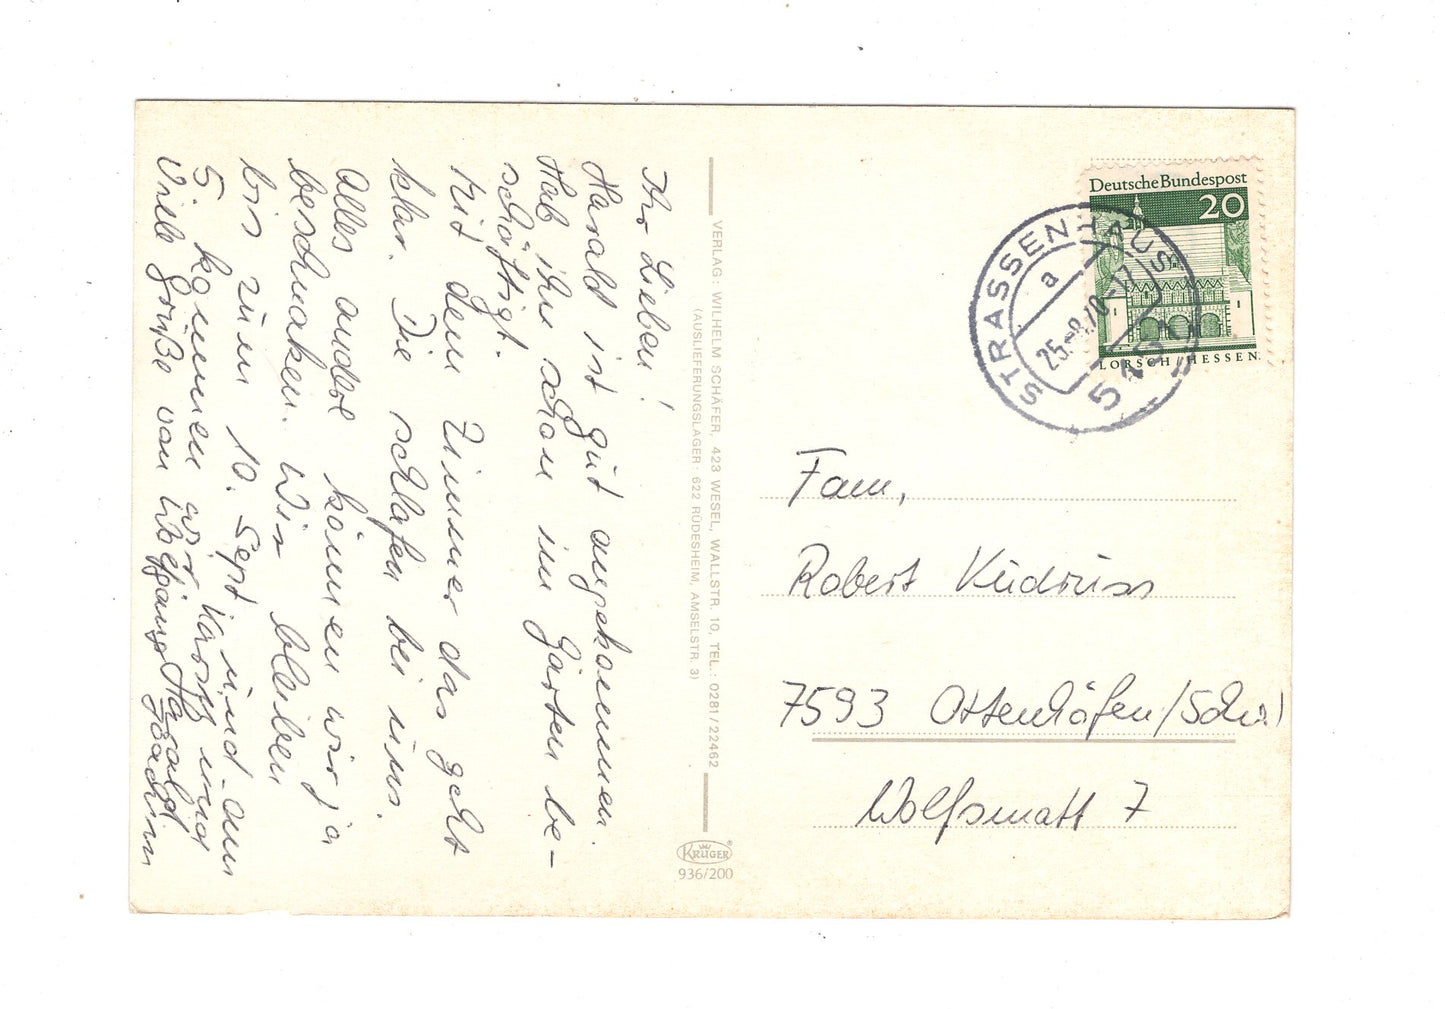 Ihr Lieben!
Harald ist gut angekommen.
Hab ihn schon im Garten be-
schäftigt.
Mit dem Zimmer das geht
klar. Die schlafen bei uns.
Alles andre können wir ja
beschnaken. Wir bleiben
bis zum 10. Sept und am
5. kommen wir
Viele Grüße von Wolfgang Harald
Joachim
VERLAG: WILHELM SCHÄFER, 423 WESEL, WALLSTR. 10, TEL.: 0281/22462
(AUSLIEFERUNGSLAGER: 622 RÜDESHEIM, AMSELSTR. 3)
KRÜGER
936/200
Deutsche Bundespost
20
LORSCH/HESSEN
STRASSENHAUS
a
25.-8.70-17
Fam,
Robert Kudruss
7593 Ottenhöfen/Schw
Wolfsmatt 7